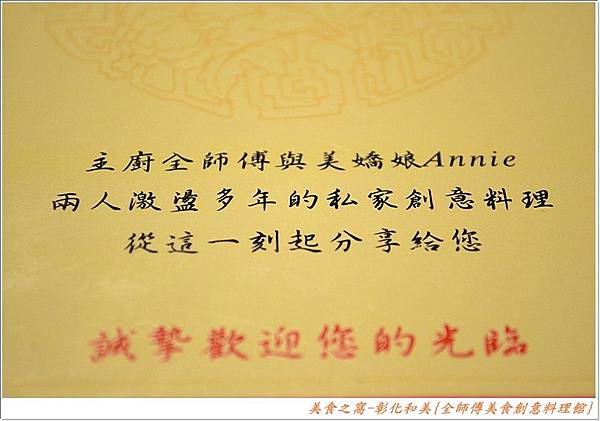 主廚全師傅與美嬌娘Annie
兩人激盪多年的私家創意料理
從這一刻起分享給您
誠摯歡迎您的光臨
美食之窩-彰化和美{全師傅美食創意料理館}